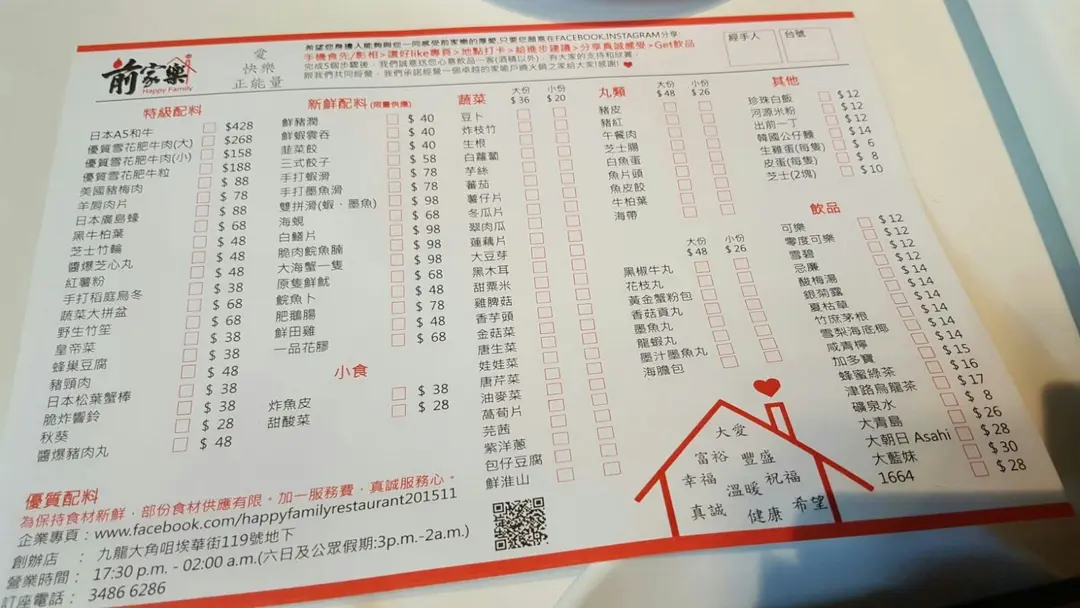 前家樂
Happy Family
愛
快樂
正能量
希望您身邊人能夠與您一同感受前家樂的厚愛,只要您願意在FACEBOOK,INSTAGRAM分享
手機食先/影相>讚好like專頁>地點打卡>給進步建議>分享真誠感受>Get飲品
完成5個步驟後，我們誠意送您心意飲品一客(酒精以外)，有大家的支持和欣賞，
跟我們共同經營，我們承諾經營一個卓越的家喻戶曉火鍋之家給大家!感謝!
經手人
台號
特級配料
日本A5和牛 $428
優質雪花肥牛肉(大) $268
優質雪花肥牛肉(小) $158
優質雪花肥牛粒 $188
美國豬梅肉 $ 88
羊肩肉片 $ 78
日本廣島蠔 $ 88
黑牛柏葉 $ 68
芝士竹輪 $ 48
醬爆芝心丸 $ 48
紅薯粉 $ 48
手打稻庭烏冬 $ 38
蔬菜大拼盆 $ 68
野生竹笙 $ 68
皇帝菜 $ 38
蜂巢豆腐 $ 38
豬頸肉 $ 48
日本松葉蟹棒 $ 38
脆炸響鈴 $ 38
秋葵 $ 28
醬爆豬肉丸 $ 48
新鮮配料 (限量供應)
鮮豬潤 $ 40
鮮蝦雲吞 $ 40
韮菜餃 $ 40
三式餃子 $ 58
手打蝦滑 $ 78
手打墨魚滑 $ 78
雙拼滑(蝦、墨魚) $ 98
海蜆 $ 68
白鱔片 $ 98
脆肉鯇魚腩 $ 98
大海蟹一隻 $ 98
原隻鮮魷 $ 68
鯇魚卜 $ 48
肥鵝腸 $ 78
鮮田雞 $ 48
一品花膠 $ 68
小食
炸魚皮 $ 38
甜酸菜 $ 28
蔬菜 大份 $36 小份 $20
豆卜
炸枝竹
生根
白蘿蔔
芋絲
蕃茄
薯仔片
冬瓜片
翠肉瓜
蓮藕片
大豆芽
黑木耳
甜粟米
雞髀菇
香芋頭
金菇菜
唐生菜
娃娃菜
唐芹菜
油麥菜
萵荀片
芫茜
紫洋蔥
包仔豆腐
鮮淮山
丸類 大份 $48 小份 $26
豬皮
豬紅
午餐肉
芝士腸
白魚蛋
魚片頭
魚皮餃
牛柏葉
海帶
大份 $48 小份 $26
黑椒牛丸
花枝丸
黃金蟹粉包
香菇貢丸
墨魚丸
龍蝦丸
墨汁墨魚丸
海膽包
其他
珍珠白飯 $12
河源米粉 $12
出前一丁 $12
韓國公仔麵 $14
生雞蛋(每隻) $ 6
皮蛋(每隻) $ 8
芝士(2塊) $10
飲品
可樂 $12
零度可樂 $12
雪碧 $12
忌廉 $12
酸梅湯 $14
銀菊露 $14
夏枯草 $14
竹庶茅根 $14
雪梨海底椰 $14
咸青檸 $14
加多寶 $15
蜂蜜綠茶 $16
津路烏龍茶 $17
礦泉水 $ 8
大青島 $26
大朝日 Asahi $28
大藍妹 $30
1664 $28
大愛
富裕 豐盛
幸福 溫暖 祝福
真誠 健康 希望
優質配料
為保持食材新鮮，部份食材供應有限。加一服務費，真誠服務心。
企業專頁：www.facebook.com/happyfamilyrestaurant201511
創辦店 ： 九龍大角咀埃華街119號地下
營業時間： 17:30 p.m. - 02:00 a.m.(六日及公眾假期:3p.m.-2a.m.)
訂座電話： 3486 6286